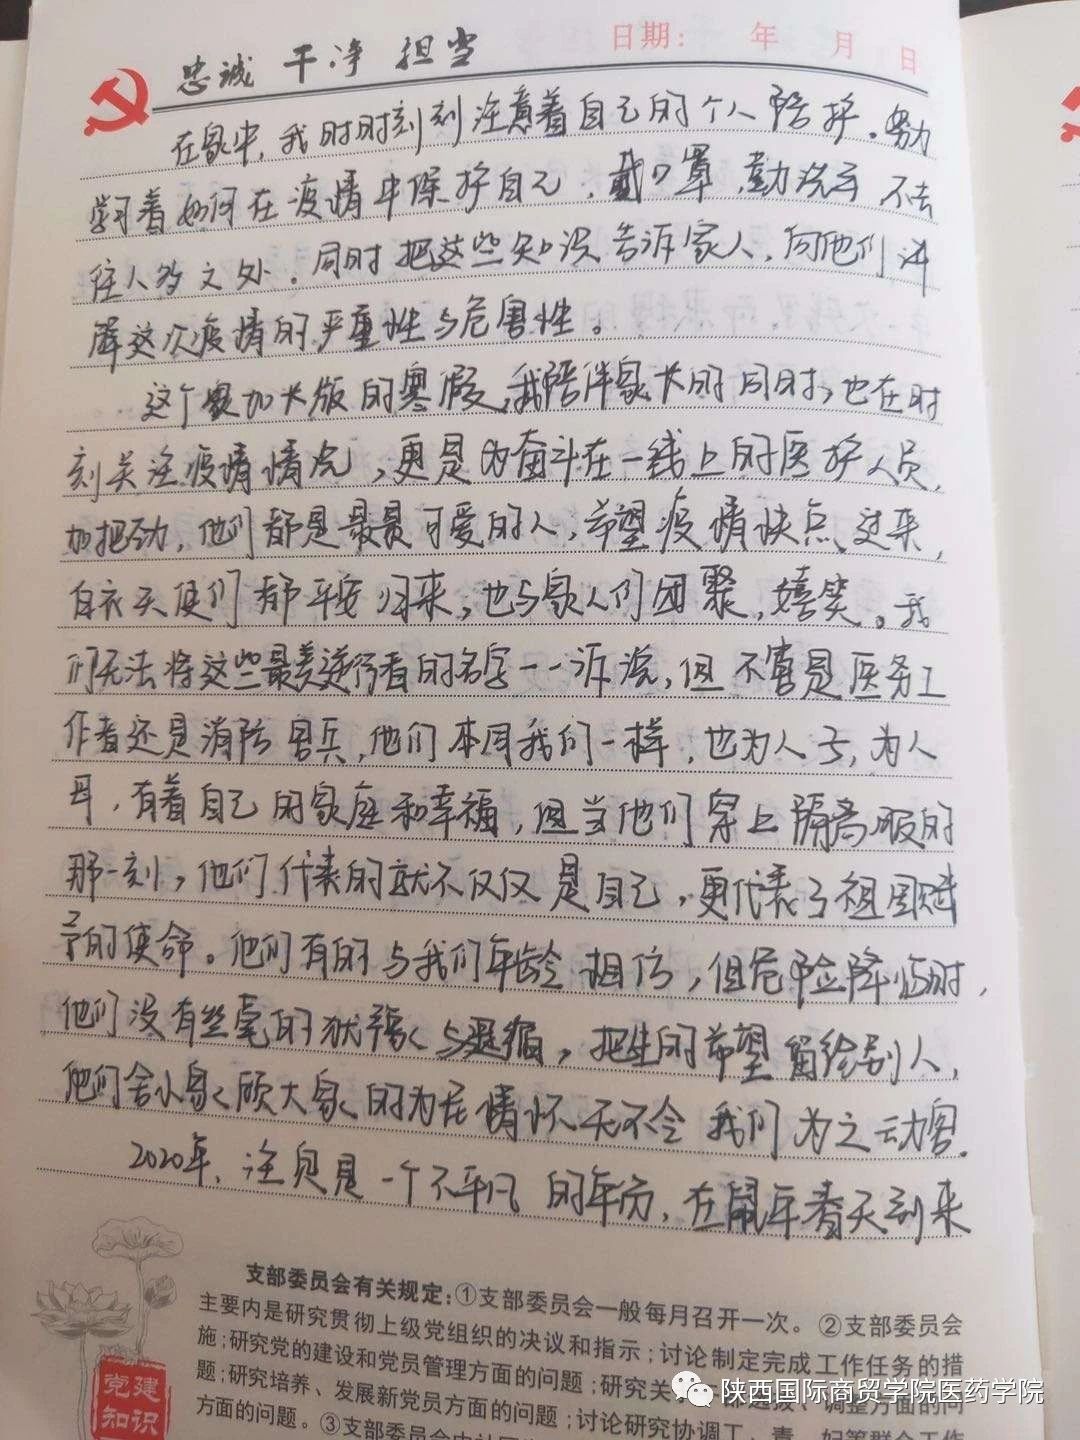 忠诚 干净 担当
日期： 年 月 日
在家中，我时时刻刻注意着自己的个人防护。努力
学习着如何在疫情中保护自己，戴口罩，勤洗手 不去
往人多之处。同时把这些知识告诉家人，向他们讲
解这次疫情的严重性与危害性。
这个加长版的寒假，我陪伴家长的同时，也在时
刻关注疫情情况，更是为奋斗在一线上的医护人员，
加把劲，他们都是最最可爱的人，希望疫情快点过来，
白衣天使们都平安归来，也与家人们团聚，嬉笑。我
们无法将这些最美逆行者的名字一一诉说，但不管是医务工
作者还是消防官兵，他们本同我们一样，也为人子，为人
母，有着自己的家庭和幸福，但当他们穿上隔离服的
那一刻，他们代表的就不仅仅是自己，更代表了祖国赋
予的使命。他们有的与我们年龄相仿，但危险降临时，
他们没有丝毫的犹豫与退缩，把生的希望留给别人，
他们舍小家顾大家的为民情怀无不令我们为之动容.
2020年，注定是一个不平凡的年份，在鼠年春天到来
支部委员会有关规定：①支部委员会一般每月召开一次。②支部委员会
主要内是研究贯彻上级党组织的决议和指示；讨论制定完成工作任务的措
施；研究党的建设和党员管理方面的问题；研究关
题；研究培养、发展新党员方面的问题；讨论研究协调工、青、妇等群众工作
方面的问题。③支部委员会
党建
知识
陕西国际商贸学院医药学院